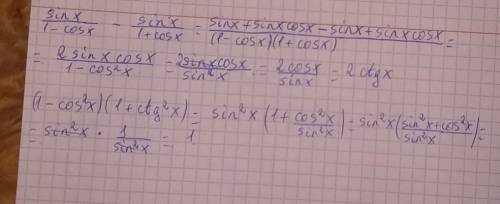 sinx/(1-cosx) - sinx/(1+cosx) = (sinx+sinxcosx-sinx+sinxcosx)/((1-cosx)(1+cosx)) =
= 2sinxcosx/(1-cos²x) = 2sinxcosx/sin²x = 2cosx/sinx = 2ctgx
(1-cos²x)(1+ctg²x) = sin²x(1+cos²x/sin²x) = sin²x((sin²x+cos²x)/sin²x) =
= sin²x · 1/sin²x = 1